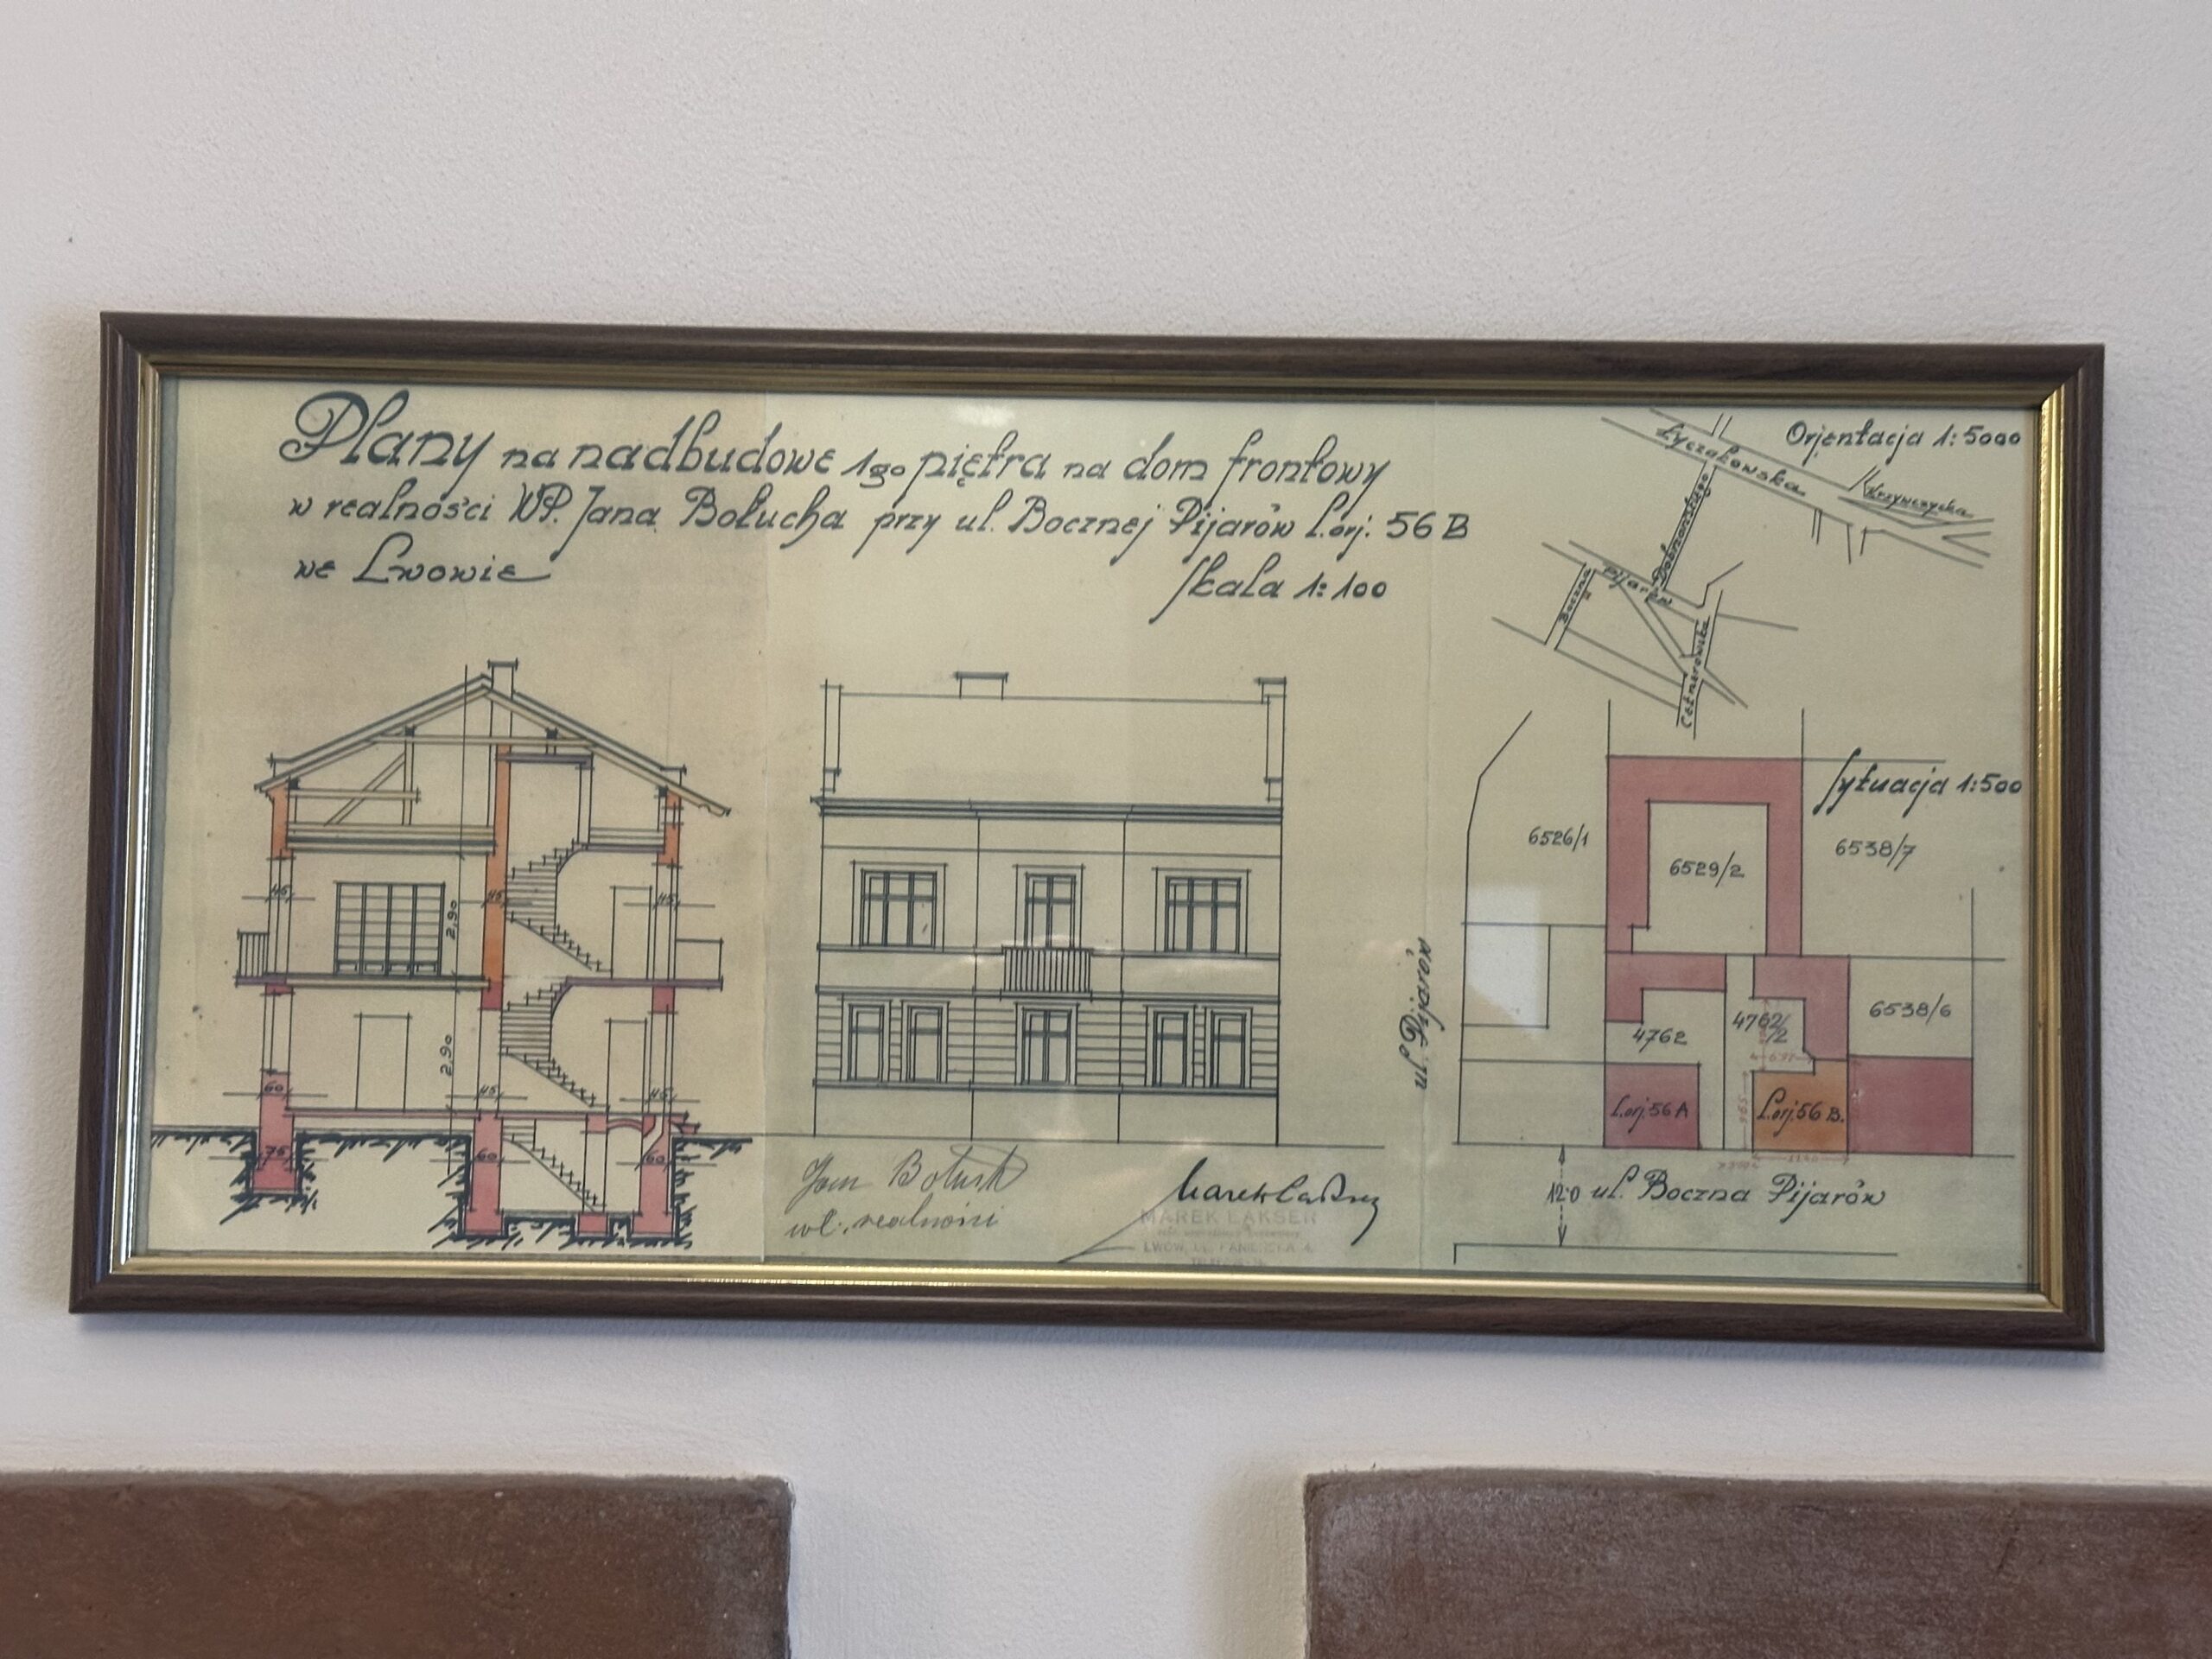 Plany na nadbudowe 1go piętra na dom frontowy
w realności WP. Jana Bołucha przy ul. Bocznej Pijarów l.orj: 56 B
we Lwowie
Skala 1:100
Orjentacja 1:5000
Łyczakowska
Krzywczycka
Dobrzańskiego
Pijarów
Boczna
Cetnerowska
Sytuacja 1:500
6526/1
6529/2
6538/7
6538/6
4762
4762/2
L.orj. 56 A
L.orj. 56 B.
ul. Pijarów
12.0 ul. Boczna Pijarów
45
45
45
2,90
2,90
60
45
45
75
60
60
Jan
wł. realności
MAREK LAKSER
LWÓW, UL.